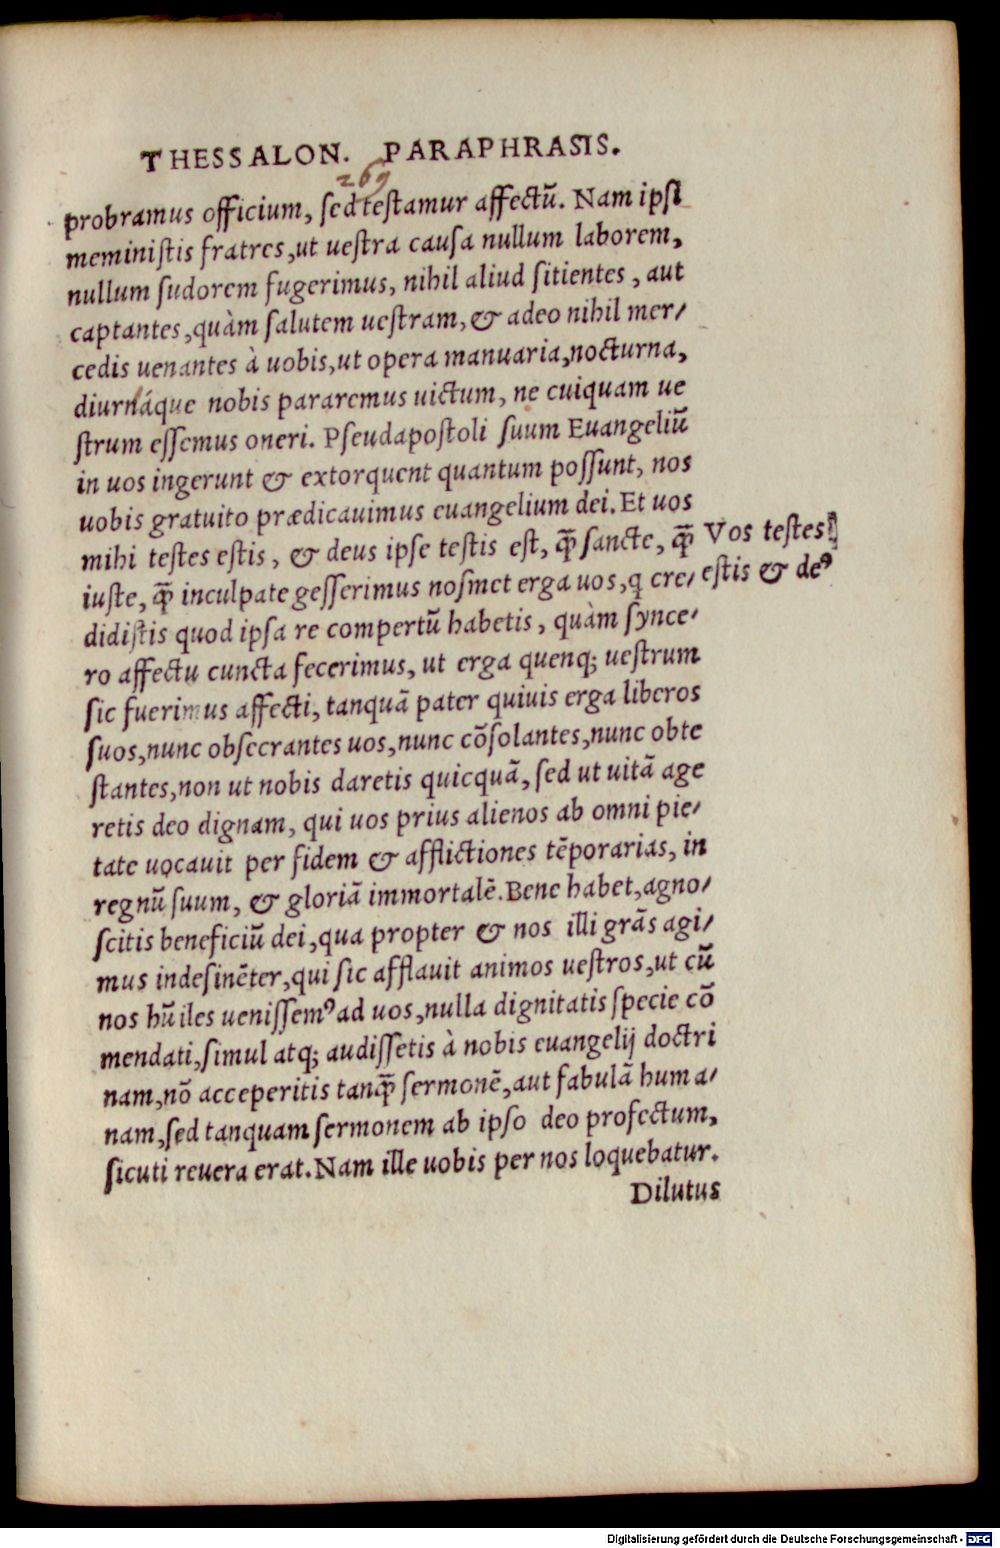 THESSALON. PARAPHRASIS.
269
probramus officium, sed testamur affectū. Nam ipsi
meministis fratres, ut uestra causa nullum laborem,
nullum sudorem fugerimus, nihil aliud sitientes, aut
captantes, quàm salutem uestram, & adeo nihil mer/
cedis uenantes à uobis, ut opera manuaria, nocturna,
diurnáque nobis pararemus uictum, ne cuiquam ue
strum essemus oneri. Pseudapostoli suum Euangeliū
in uos ingerunt & extorquent quantum possunt, nos
uobis gratuito prædicauimus euangelium dei. Et uos
mihi testes estis, & deus ipse testis est, q̄ sancte, q̄
Vos testes
iuste, q̄ inculpate gesserimus nosmet erga uos, q cre/
estis & deꝰ
didistis quod ipsa re compertū habetis, quàm synce/
ro affectu cuncta fecerimus, ut erga quenq; uestrum
sic fuerimus affecti, tanquā pater quiuis erga liberos
suos, nunc obsecrantes uos, nunc cōsolantes, nunc obte
stantes, non ut nobis daretis quicquā, sed ut uitā age
retis deo dignam, qui uos prius alienos ab omni pie/
tate uocauit per fidem & afflictiones tēporarias, in
regnū suum, & gloriā immortalē. Bene habet, agno/
scitis beneficiū dei, qua propter & nos illi grās agi/
mus indesinēter, qui sic afflauit animos uestros, ut cū
nos hūiles uenissemꝰ ad uos, nulla dignitatis specie cō
mendati, simul atq; audissetis à nobis euangelij doctri
nam, nō acceperitis tanq̄ sermonē, aut fabulā huma/
nam, sed tanquam sermonem ab ipso deo profectum,
sicuti reuera erat. Nam ille uobis per nos loquebatur.
Dilutus
Digitalisierung gefördert durch die Deutsche Forschungsgemeinschaft - DFG